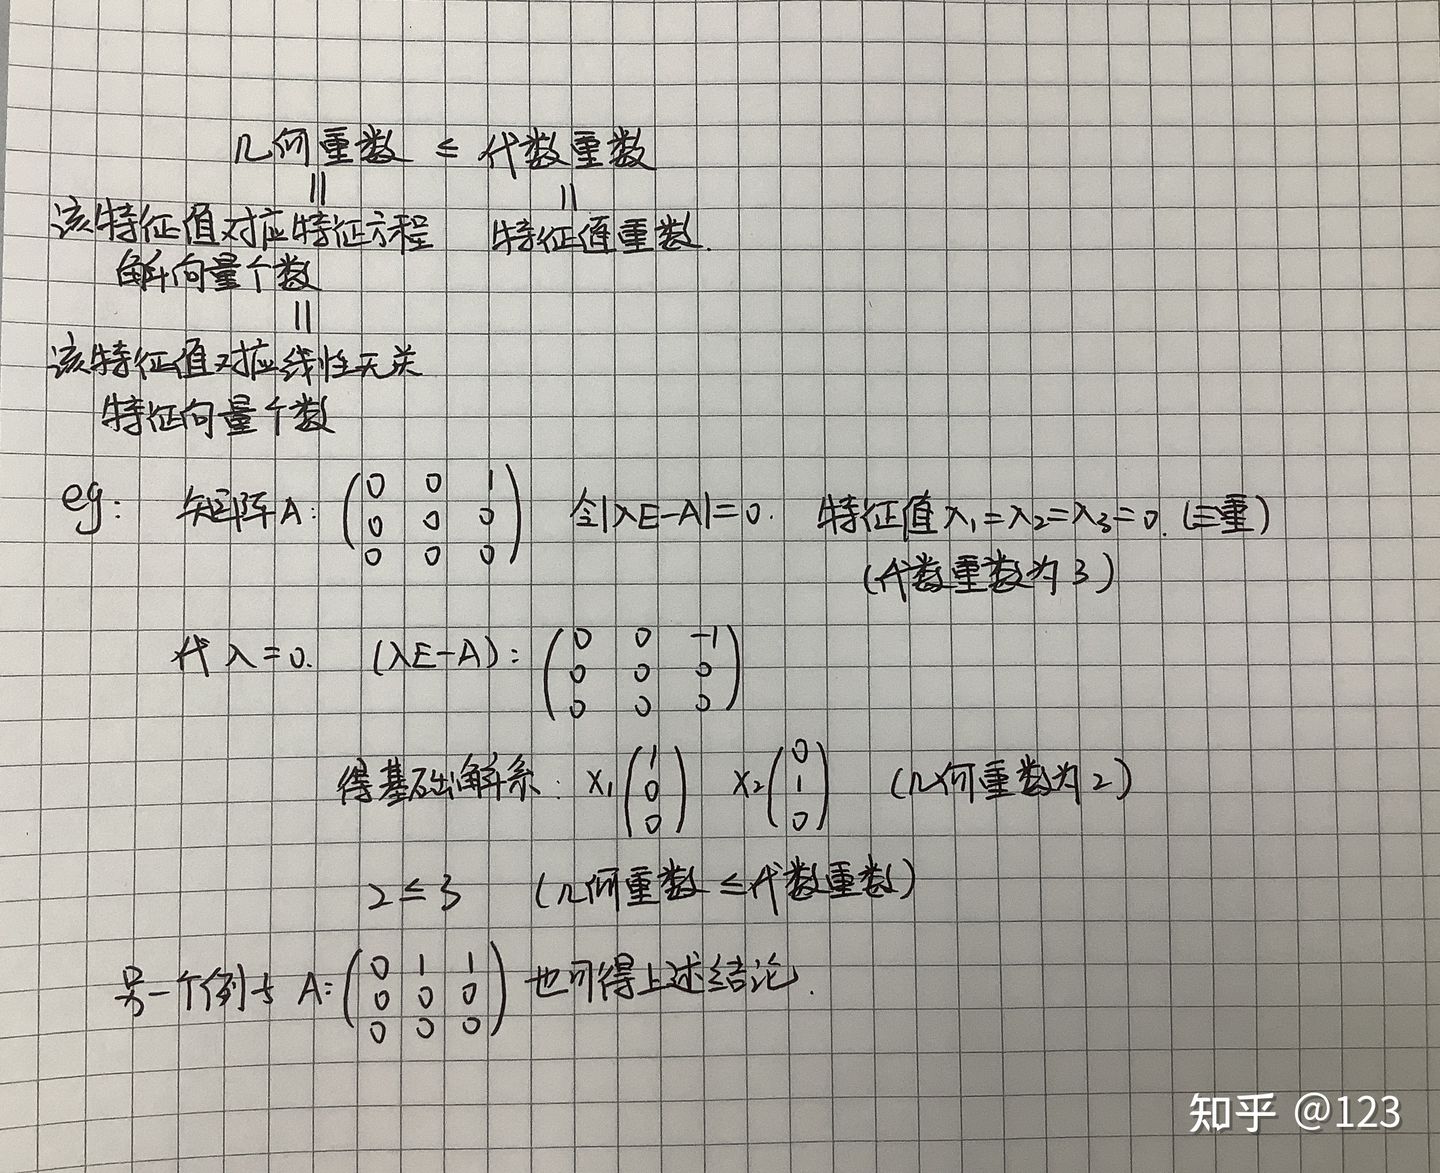 几何重数 ≤ 代数重数
|| ||
该特征值对应特征方程 特征值重数.
解向量个数
||
该特征值对应线性无关
特征向量个数
eg: 矩阵A: (0 0 1; 0 0 0; 0 0 0) 令|λE-A|=0. 特征值λ₁=λ₂=λ₃=0.(三重)
(代数重数为3)
代λ=0. (λE-A): (0 0 -1; 0 0 0; 0 0 0)
得基础解系: X₁(1; 0; 0) X₂(0; 1; 0) (几何重数为2)
2≤3 (几何重数≤代数重数)
另一个例子 A:(0 1 1; 0 0 0; 0 0 0) 也可得上述结论.
知乎 @123